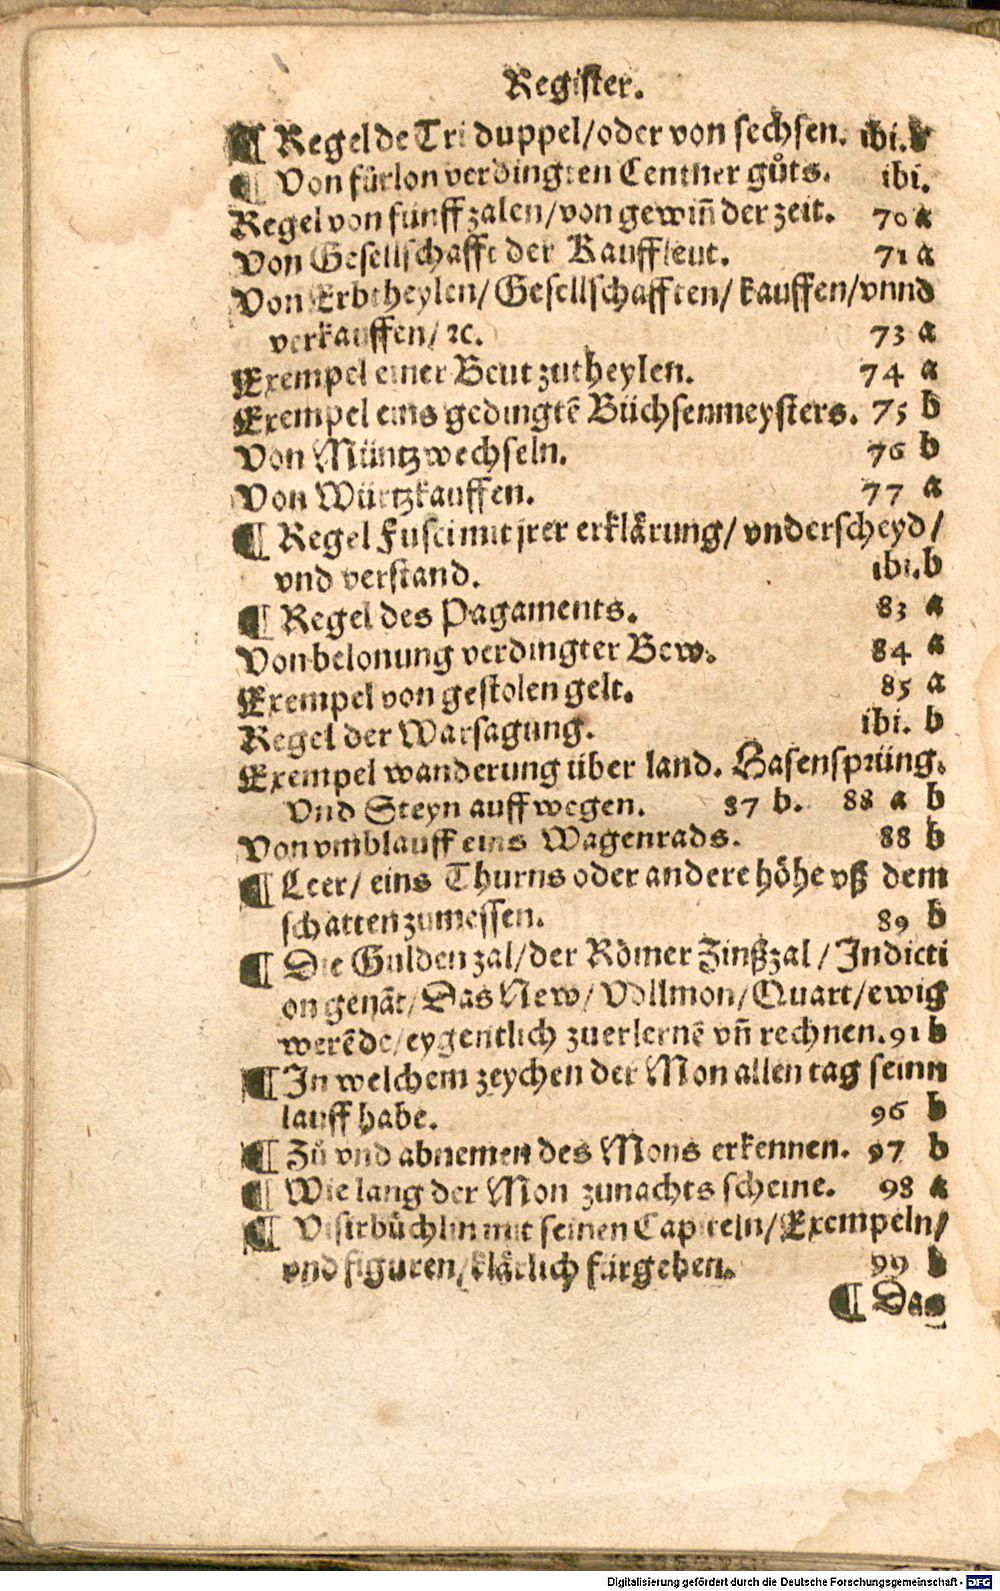 Register.
¶ Regel de Tri duppel/oder von sechsen. ibi.b
¶ Von fürlon verdingten Centner gůts. ibi.
Regel von fünff zalen/von gewiñ der zeit. 70 a
Von Gesellschafft der Kauffleut. 71 a
Von Erbtheylen/ Gesellschafften/ kauffen/vnnd
verkauffen/ ꝛc. 73 a
Exempel einer Beut zutheylen. 74 a
Exempel eins gedingtē Büchsenmeysters. 75 b
Von Müntz wechseln. 76 b
Von Würtzkauffen. 77 a
¶ Regel Fusci mit jrer erklärung/ vnderscheyd/
vnd verstand. ibi.b
¶ Regel des Pagaments. 83 a
Von belonung verdingter Bew. 84 a
Exempel von gestolen gelt. 85 a
Regel der Warsagung. ibi. b
Exempel wanderung über land. Hasensprüng.
Vnd Steyn auff wegen. 87 b. 88 a b
Von vmblauff eins Wagenrads. 88 b
¶ Leer/ eins Thurns oder andere höhe vß dem
schatten zumessen. 89 b
¶ Die Gulden zal/der Römer Zinßzal / Indicti
on genāt/ Das New/ Vollmon/Quart/ewig
werēde/eygentlich zuerlernē vñ rechnen. 91 b
¶ In welchem zeychen der Mon allen tag seinn
lauff habe. 96 b
¶ Zů vnd abnemen des Mons erkennen. 97 b
¶ Wie lang der Mon zunachts scheine. 98 a
¶ Visirbüchlin mit seinen Capiteln/Exempeln/
vnd figuren/klärlich fürgeben. 99 b
¶ Das
Digitalisierung gefördert durch die Deutsche Forschungsgemeinschaft - DFG